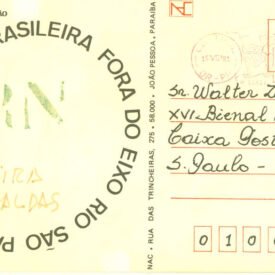 ÃO
BRASILEIRA FORA DO EIXO RIO SÃO PA
RN
NAC • RUA DAS TRINCHEIRAS, 275 • 58.000 • JOÃO PESSOA, PARAÍBA
Sr. Walter Z
XVI Bienal
Caixa Post
S. Paulo -
0 1 0